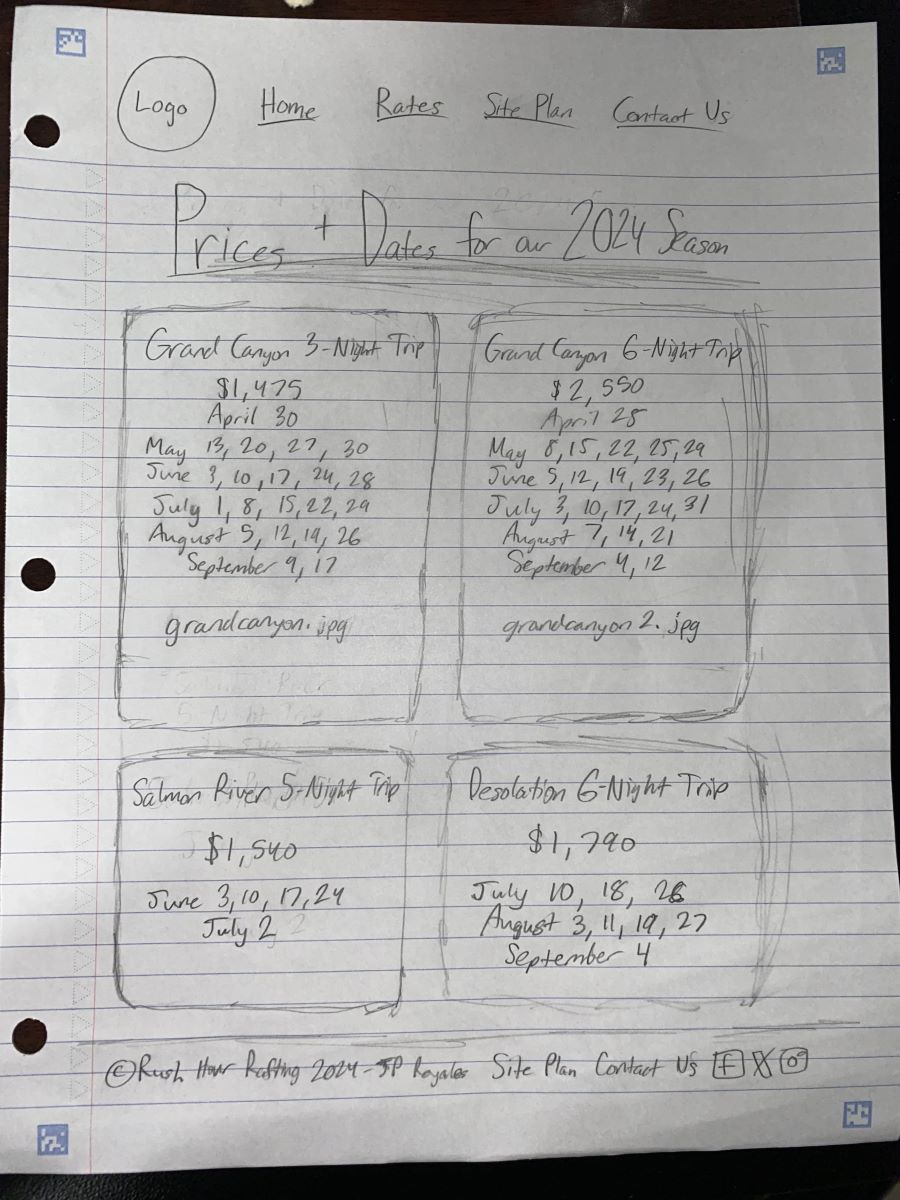 Logo Home Rates Site Plan Contact Us
Prices + Dates for our 2024 Season
Grand Canyon 3-Night Trip
$1,475
April 30
May 13, 20, 27, 30
June 3, 10, 17, 24, 28
July 1, 8, 15, 22, 29
August 5, 12, 19, 26
September 9, 17
grandcanyon.jpg
Grand Canyon 6-Night Trip
$2,550
April 28
May 8, 15, 22, 25, 29
June 5, 12, 19, 23, 26
July 3, 10, 17, 24, 31
August 7, 14, 21
September 4, 12
grandcanyon2.jpg
Salmon River 5-Night Trip
$1,540
June 3, 10, 17, 24
July 2
Desolation 6-Night Trip
$1,790
July 10, 18, 26
August 3, 11, 19, 27
September 4
©Rush Hour Rafting 2024-JP Royales Site Plan Contact Us f X